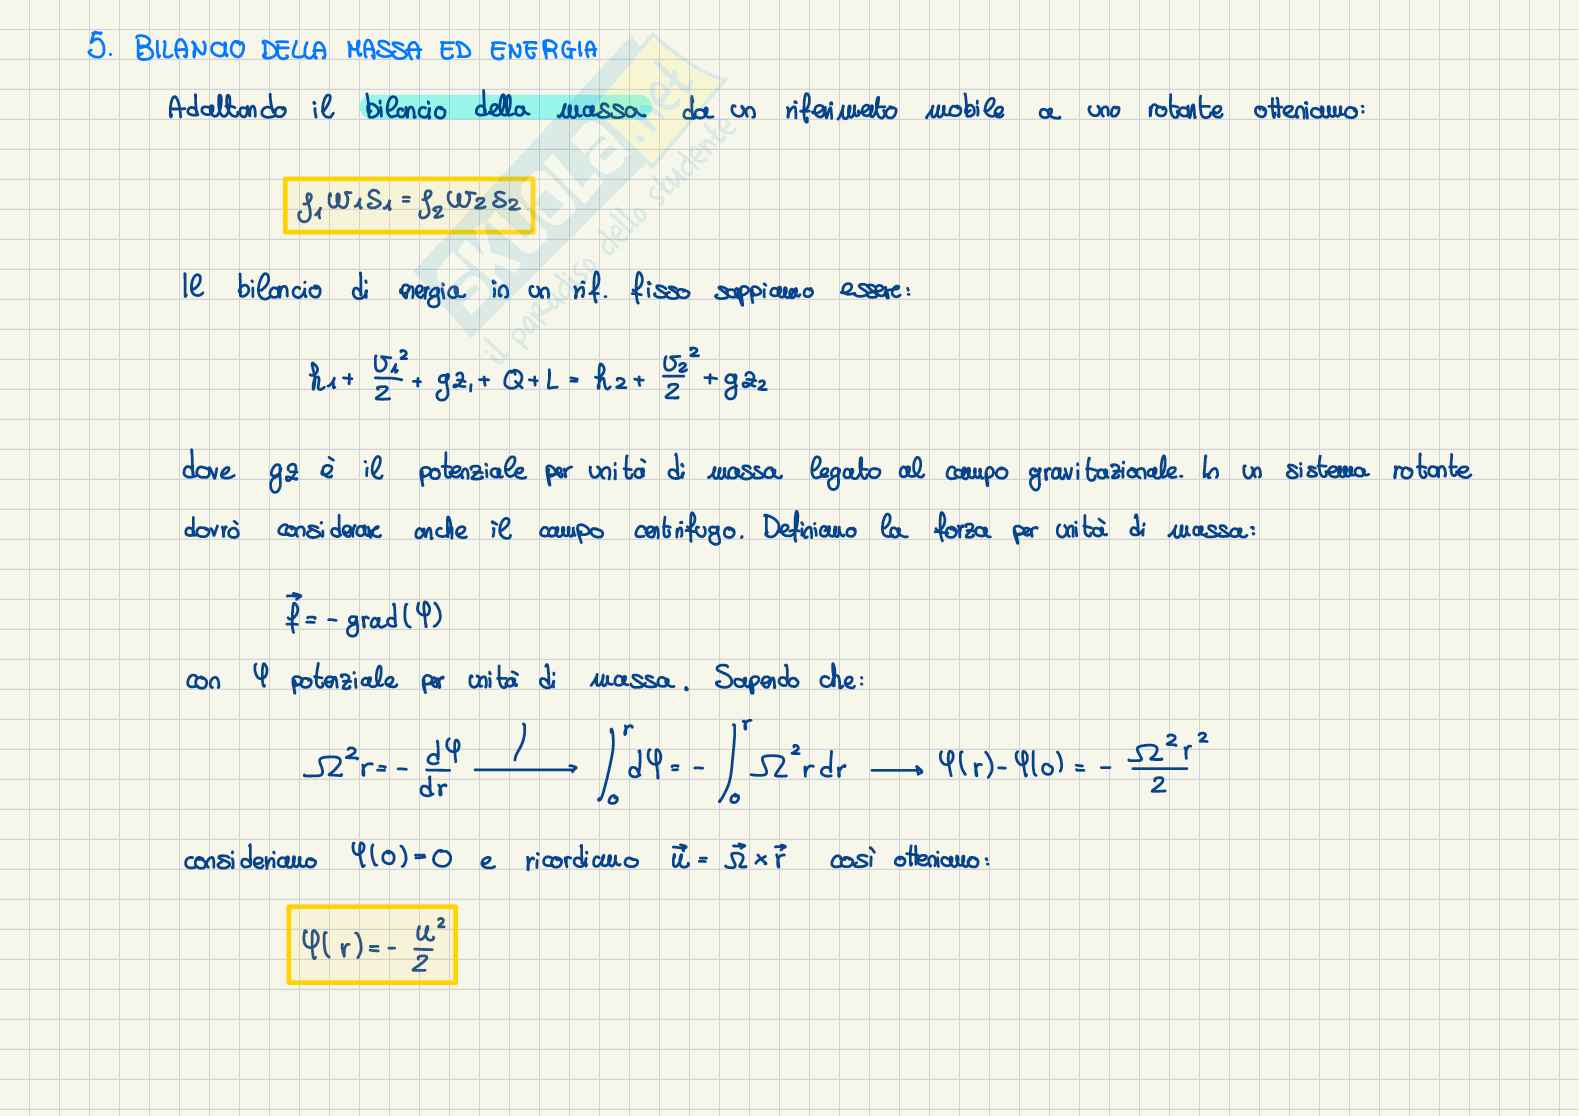 5. BILANCIO DELLA MASSA ED ENERGIA
Adattando il bilancio della massa da un riferimento mobile a uno rotante otteniamo:
ρ₁ w₁ S₁ = ρ₂ w₂ S₂
Il bilancio di energia in un rif. fisso sappiamo essere:
h₁ + v₁²/2 + gz₁ + Q + L = h₂ + v₂²/2 + gz₂
dove gz è il potenziale per unità di massa legato al campo gravitazionale. In un sistema rotante
dovrò considerare anche il campo centrifugo. Definiamo la forza per unità di massa:
f⃗ = - grad(φ)
con φ potenziale per unità di massa. Sapendo che:
Ω²r = - dφ/dr ⟶ ∫₀ʳ dφ = - ∫₀ʳ Ω² r dr ⟶ φ(r) - φ(0) = - Ω²r²/2
consideriamo φ(0) = 0 e ricordiamo u⃗ = Ω⃗ × r⃗ così otteniamo:
φ(r) = - u²/2
skuola.net
il paradiso dello studente